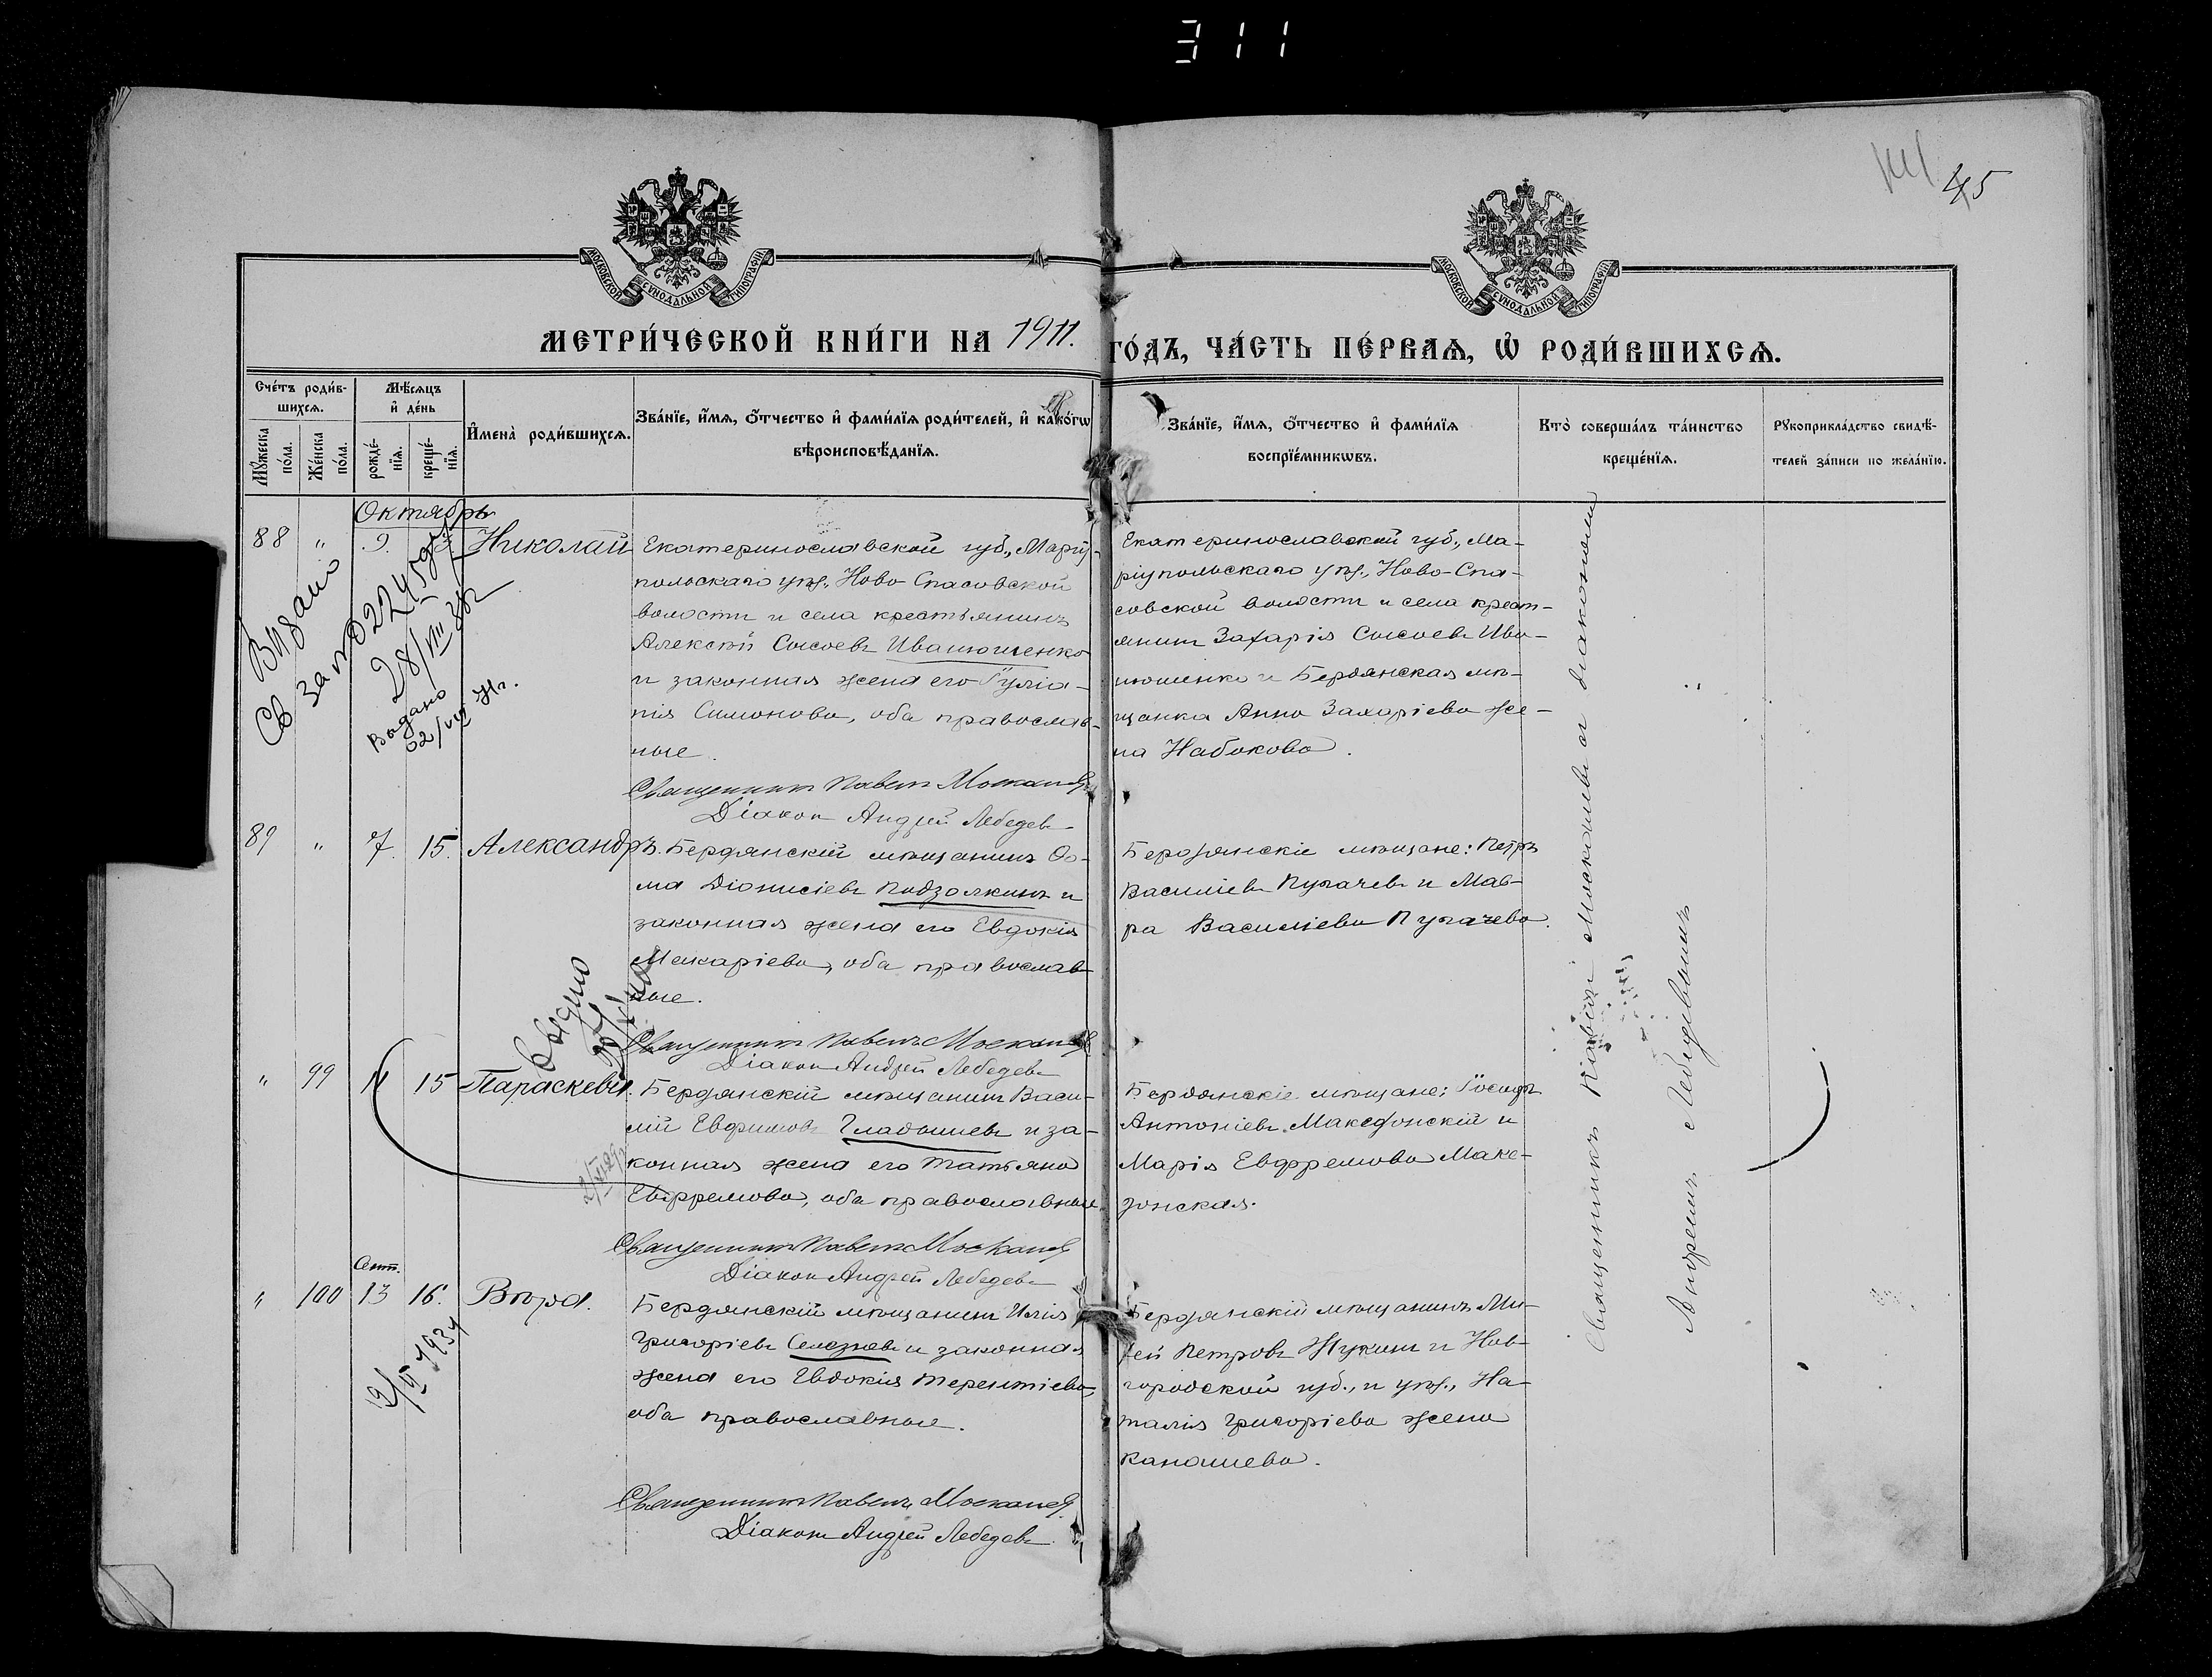 311
141
45
МОСКОВСКОЙ СѴНОДАЛЬНОЙ ТИПОГРАФІИ
МОСКОВСКОЙ СѴНОДАЛЬНОЙ ТИПОГРАФІИ
МЕТРИ́ЧЕСКОЙ КНИ́ГИ НА 1911.
ГО́ДЪ, ЧА́СТЬ ПЕ́РВАѦ, Ѡ҆ РОДИ́ВШИХСѦ.
Сче́тъ роди́в-
шихсѧ.
Мꙋ́жеска по́ла.
Же́нска по́ла.
Мѣ́сѧцъ
и҆ де́нь
рожде́-
нїѧ.
креще́-
нїѧ.
И҆мена̀ роди́вшихсѧ.
Зва́нїе, и҆́мѧ, ѻ҆́тчество и҆ фами́лїѧ роди́телей, и҆ како́гѡ
вѣроисповѣ́данїѧ.
Зва́нїе, и҆́мѧ, ѻ҆́тчество и҆ фами́лїѧ
воспрїе́мникѡвъ.
Кто̀ соверша́лъ та́инство
креще́нїѧ.
Рꙋкоприкла́дство свидѣ́-
телей за́писи по жела́нїю.
Октябрь
88 " 9.
Николай
Екатеринославской губ., Маріу-
польскаго уѣз., Ново-Спасовской
волости и села крестьянинъ
Алексѣй Сысоевъ Иванюшенко
и законная жена его Іуліа-
нія Симонова, оба православ-
ные.
Священникъ Павелъ Москалевъ
Діаконъ Андрей Лебедевъ
Екатеринославской губ., Ма-
ріупольскаго уѣз., Ново-Спа-
совской волости и села крест-
янинъ Захарія Сысоевъ Ива-
нюшенко и Бердянская мѣ-
щанка Анна Захаріева же-
на Набокова.
Видано
28/VIII
Выдано
89 " 7. 15. Александръ.
Бердянскій мѣщанинъ Ѳо-
ма Діонисіевъ Подзолкинъ и
законная жена его Евдокія
Макаріева, оба православ-
ные.
Священникъ Павелъ Москалевъ
Діаконъ Андрей Лебедевъ
Бердянскіе мѣщане: Петръ
Василіевъ Пугачевъ и Мав-
ра Василіева Пугачева.
Выдано
" 99 11 15 Параскева.
Бердянскій мѣщанинъ Васи-
лій Евфимовъ Гладышевъ и за-
конная жена его Татьяна
Евфремова, оба православные
Священникъ Павелъ Москалевъ
Діаконъ Андрей Лебедевъ
Бердянскіе мѣщане: Іосифъ
Антоніевъ Македонскій и
Марія Евфремова Маке-
донская.
Сент.
" 100 13 16. Вѣра.
Бердянскій мѣщанинъ Илія
Григоріевъ Селезневъ и законная
жена его Евдокія Терентіева,
оба православные.
Священникъ Павелъ Москалевъ
Діаконъ Андрей Лебедевъ
Бердянскій мѣщанинъ Ми-
Петровъ Жукинъ и Нов-
городской губ., и уѣз., На-
талія Григоріева жена
Канашева.
Священникъ Павелъ Москалевъ съ діакономъ
Андреемъ Лебедевымъ